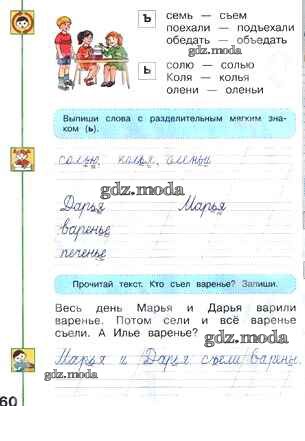 ъ
семь — съем
поехали — подъехали
обедать — объедать
gdz.moda
ь
солю — солью
Коля — колья
олени — оленьи
Выпиши слова с разделительным мягким зна-
ком (ь).
солью, колья, оленьи
gdz.moda
Дарья Марья
варенье
печенье
gdz.moda
Прочитай текст. Кто съел варенье? Запиши.
Весь день Марья и Дарья варили
варенье. Потом сели и всё варенье
съели. А Илье варенье?
gdz.moda
Марья и Дарья съели варенье.
gdz.moda
60